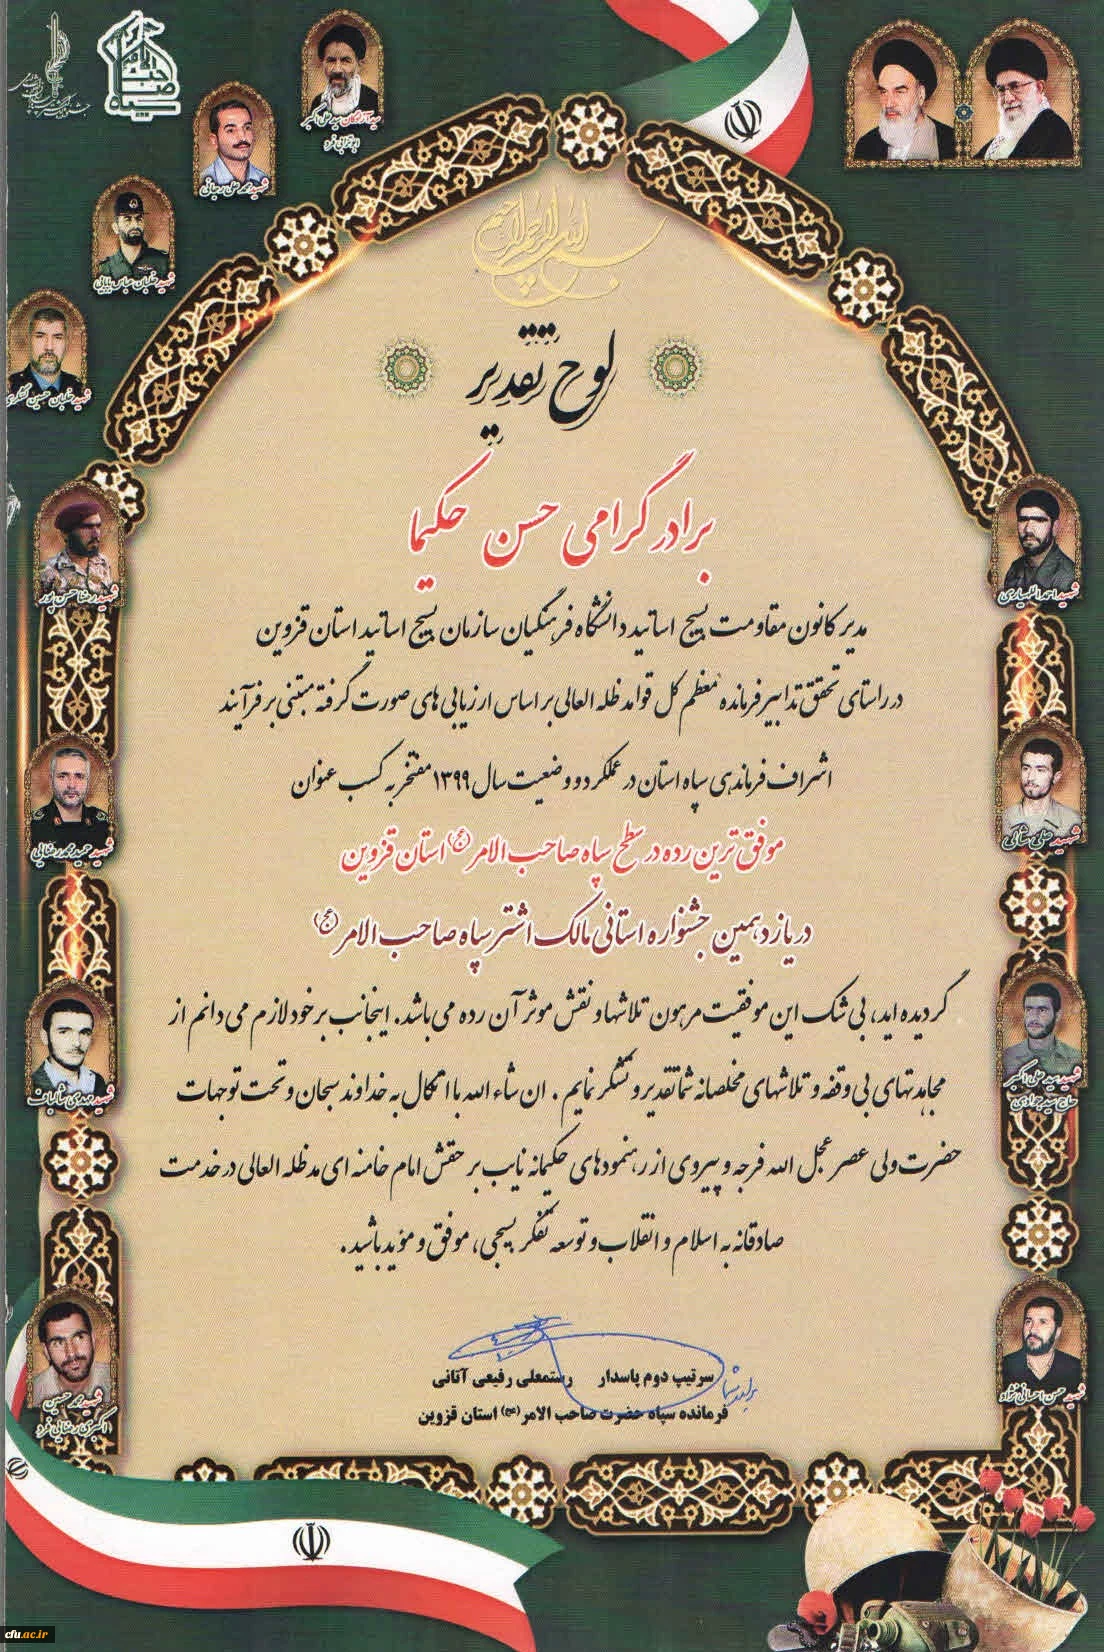 بسم الله الرحمن الرحیم
سید آزادگان سید علی اکبر
ابوترابی فرد
شهید محمد علی رجائی
شهید خلبان عباس بابایی
شهید خلبان حسین لشگری
شهید رضا حسن پور
شهید احمد اللهیاری
شهید حمید محمدرضایی
شهید مهدی شالباف
شهید سید علی اکبر
حاج سید جوادی
شهید محمد حسین
اکبری رضایی فرد
شهید حسن احسانی نژاد
لوح تقدیر
برادر گرامی حسن حکیما
مدیر کانون مقاومت بسیج اساتید دانشگاه فرهنگیان سازمان بسیج اساتید استان قزوین
در راستای تحقق تدابیر فرمانده معظم کل قوا مدظله العالی بر اساس ارزیابی های صورت گرفته مبتنی بر فرآیند
اشراف فرماندهی سپاه استان در عملکرد و وضعیت سال ۱۳۹۹ مفتخر به کسب عنوان
موفق ترین رده در سطح سپاه صاحب الامر (عج) استان قزوین
در یازدهمین جشنواره استانی مالک اشتر سپاه صاحب الامر (عج)
گردیده اید، بی شک این موفقیت مرهون تلاشها و نقش موثر آن رده می باشد. اینجانب بر خود لازم می دانم از
مجاهدتهای بی وقفه و تلاشهای مخلصانه شما تقدیر و تشکر نمایم. ان شاء الله با اتکال به خداوند سبحان و تحت توجهات
حضرت ولی عصر عجل الله فرجه و پیروی از رهنمودهای حکیمانه نایب بر حقش امام خامنه ای مدظله العالی در خدمت
صادقانه به اسلام و انقلاب و توسعه تفکر بسیجی، موفق و موید باشید.
سرتیپ دوم پاسدار رستمعلی رفیعی آتانی
فرمانده سپاه حضرت صاحب الامر (عج) استان قزوین
cfu.ac.ir